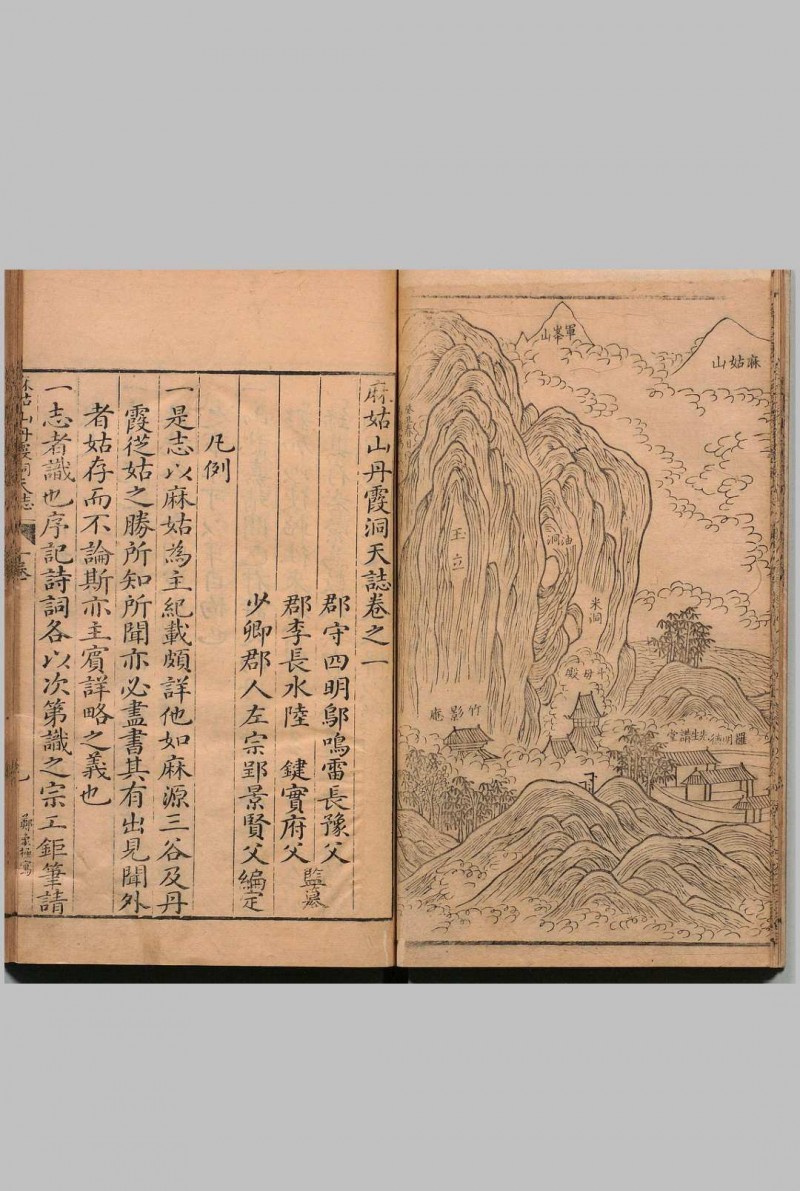 麻姑山
軍峯山
玉立
油洞
米洞
斗母殿
竹影庵
羅明德先生講堂
麻姑山丹霞洞天誌卷之一
郡守四明鄔鳴雷長豫父
郡李長水陸　鍵實府父 監纂
少卿郡人左宗郢景賢父編定
凡例
一是志以麻姑為主紀載頗詳他如麻源三谷及丹
霞從姑之勝所知所聞亦必盡書其有出見聞外
者姑存而不論斯亦主賓詳略之義也
一志者識也序記詩詞各以次第識之宗工鉅筆請
麻姑山丹霞洞天志
一卷